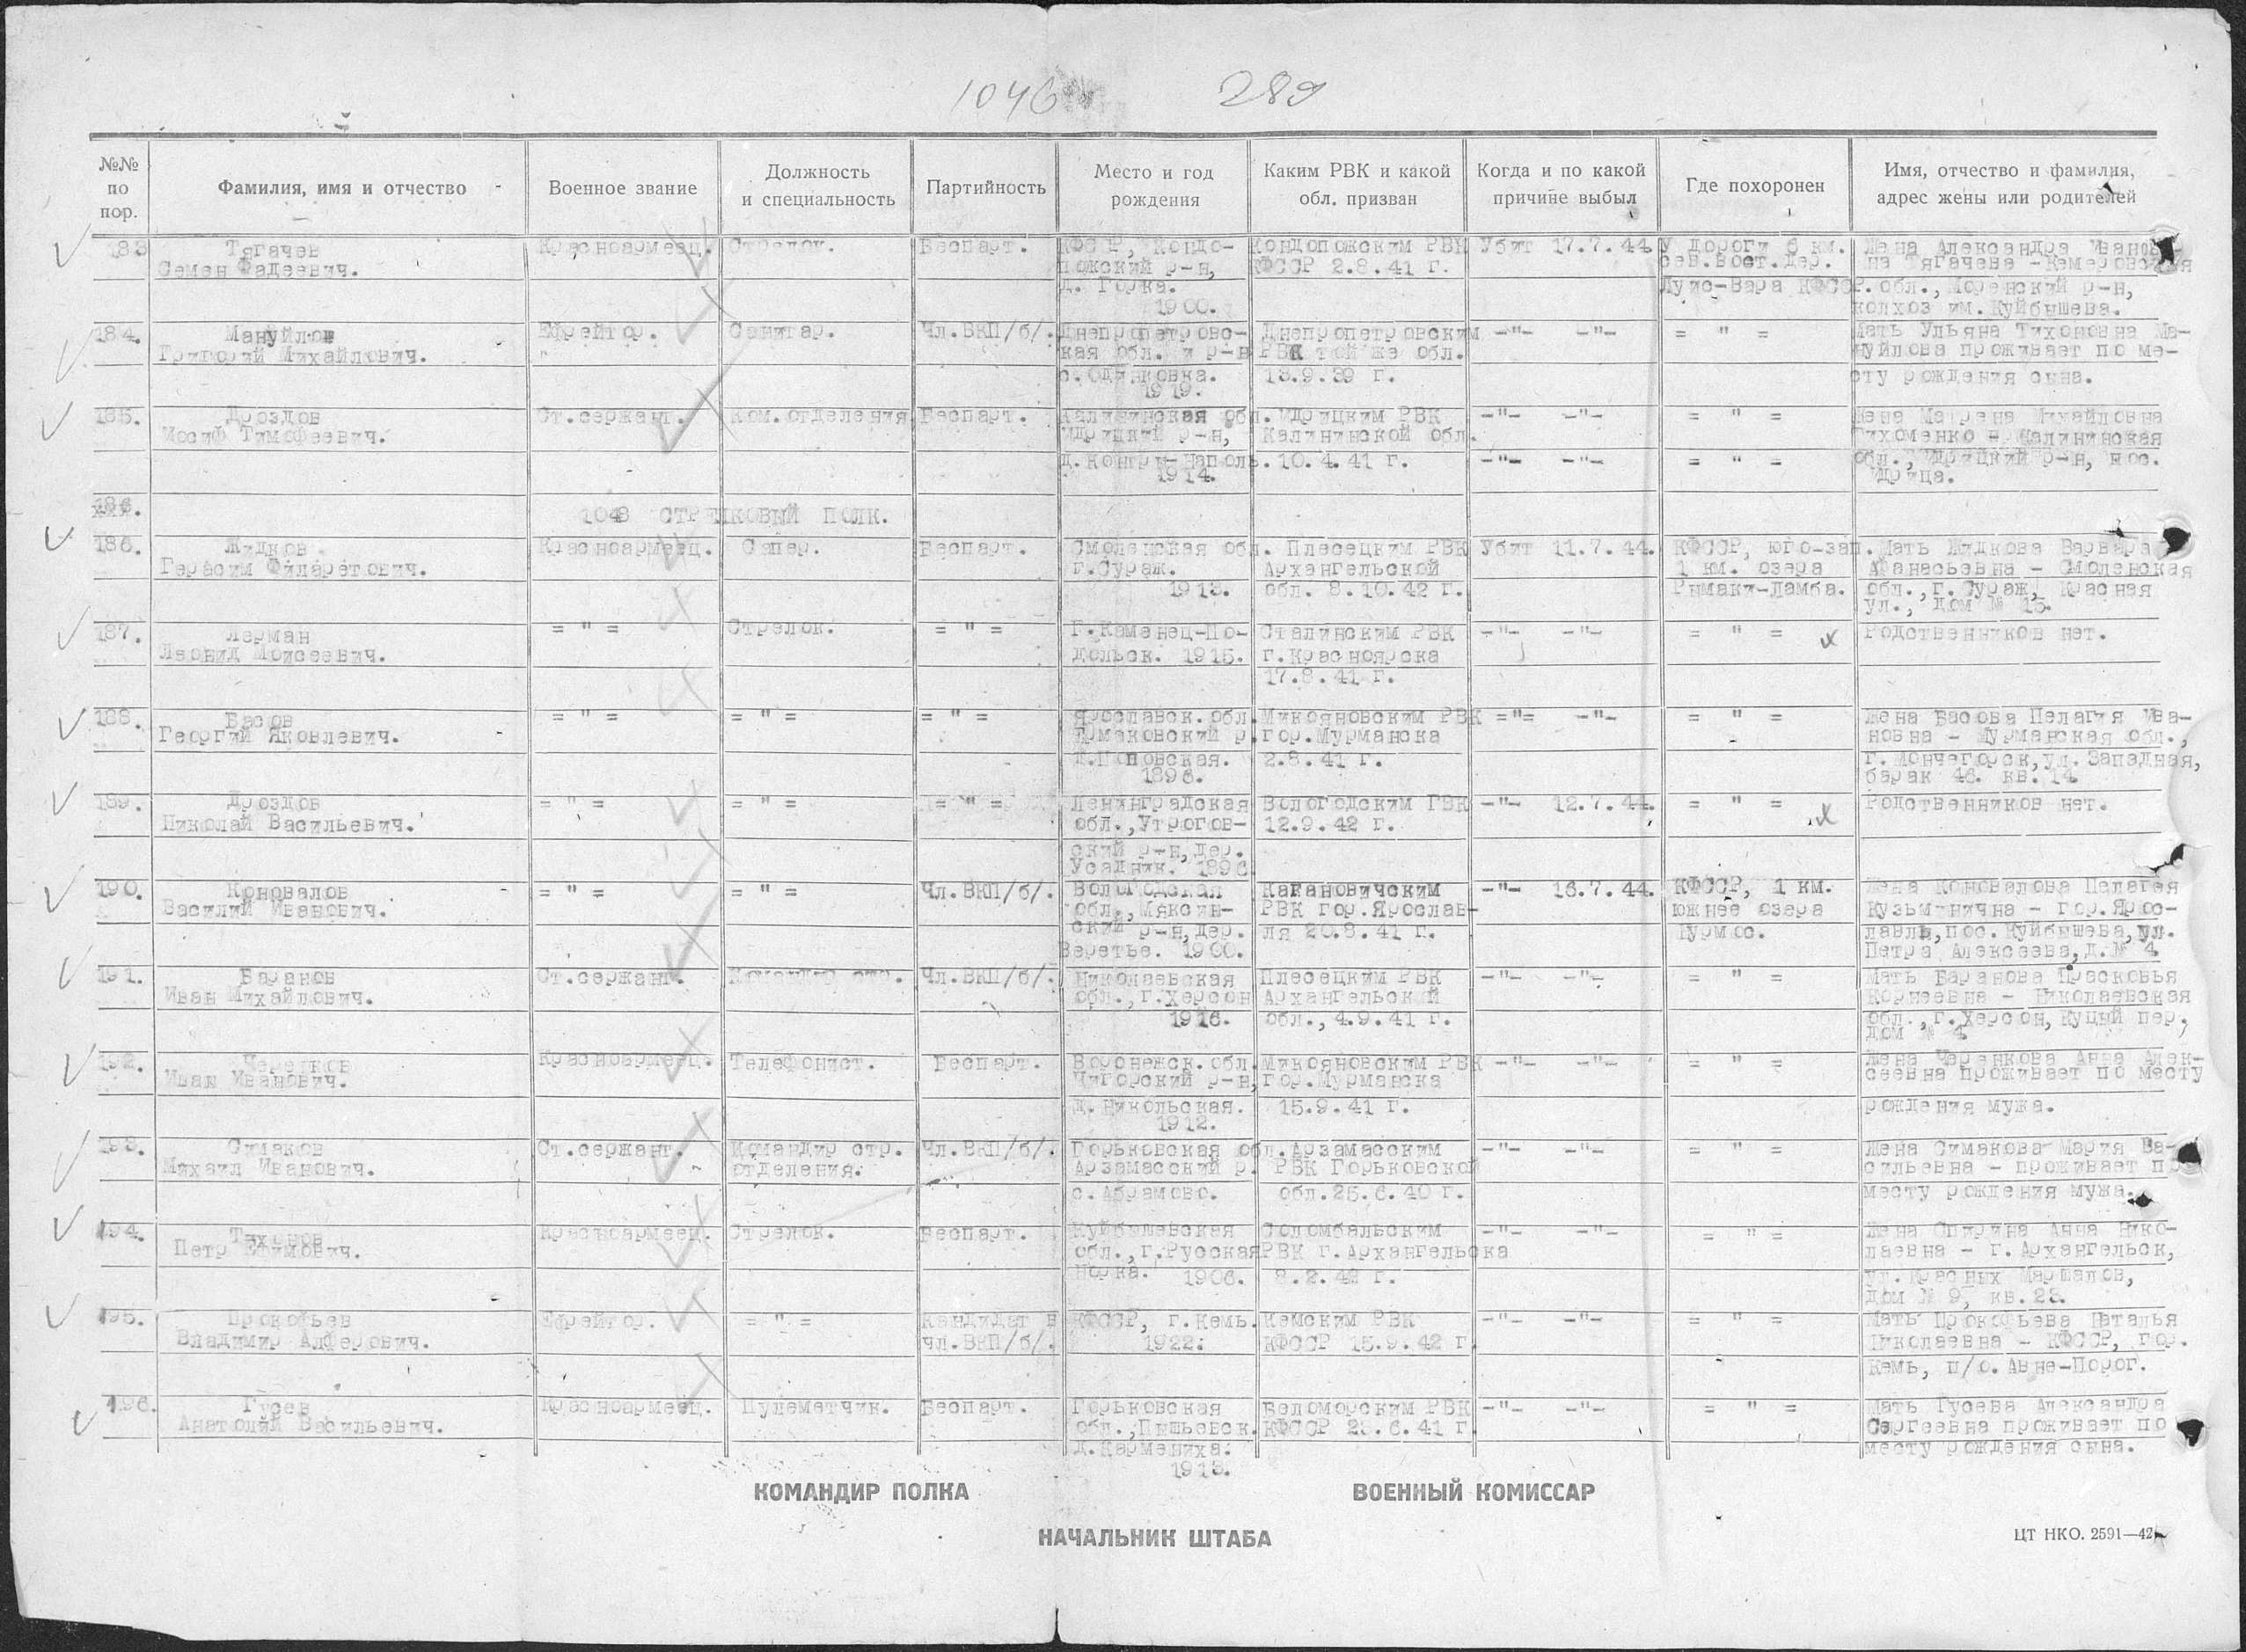 1046 289
№№ по пор.
Фамилия, имя и отчество
Военное звание
Должность и специальность
Партийность
Место и год рождения
Каким РВК и какой обл. призван
Когда и по какой причине выбыл
Где похоронен
Имя, отчество и фамилия, адрес жены или родителей
183 Тягачев Красноармеец. Стрелок. Беспарт. КФССР, Кондо- Кондопожским РВК Убит 17.7.44. У дороги 6 км. Жена Александра Иванов-
Семен Фадеевич. пожский р-н, КФССР 2.8.41 г. сев.вост.дер. на Тягачева -Кемеровская
д. Горка. Луис-Вара КФССР. обл., р-н,
1900. колхоз им.Куйбышева.
184. Мануйлов Ефрейтор. Санитар. Чл.ВКП/б/. Днепропетровс- Днепропетровским -"- -"- = " = Мать Ульяна Тихоновна Ма-
Григорий Михайлович. кая обл. и р-н РВК той же обл. нуйлова проживает по ме-
с.Одинковка. 13.9.39 г. сту рождения сына.
1919.
185. Дроздов Ст.сержант. Ком.отделения Беспарт. Калининская обл. Идрицким РВК -"- -"- = " = Жена Матрена Михайловна
Иосиф Тимофеевич. Идрицкий р-н, Калининской обл. Тихоменко - Калининская
д. 10.4.41 г. -"- -"- = " = обл., Идрицкий р-н, пос.
1914. Идрица.
186.
1048 СТРЕЛКОВЫЙ ПОЛК.
186. Жидков Красноармеец. Сапер. Беспарт. Смоленская обл. Плесецким РВК Убит 11.7.44. КФССР, юго-зап. Мать Жидкова Варвара
Герасим Филаретович. г.Сураж. Архангельской 1 км. озера Афанасьевна - Смоленская
1913. обл. 8.10.42 г. Рымаки-Ламба. обл., г.Сураж, Красная
ул., дом № 15.
187. Лерман = " = Стрелок. = " = Г.Каменец-По- Сталинским РВК -"- -"- = " = х Родственников нет.
Леонид Моисеевич. дольск. 1915. г.Красноярска
17.8.41 г.
188. Басов = " = = " = = " = Ярославск.обл. Микояновским РВК ="= -"- = " = Жена Басова Пелагия Ива-
Георгий Яковлевич. Ермаковский р. гор.Мурманска новна - Мурманская обл.,
д.Поповская. 2.8.41 г. г. Мончегорск, ул. Западная,
1896. барак 46. кв.14.
189. Дроздов = " = = " = = " = Ленинградская Вологодским ГВК -"- 12.7.44. = " = х Родственников нет.
Николай Васильевич. обл.,Утрогов- 12.9.42 г.
ский р-н,дер.
Усадник. 1896
190. Коновалов = " = = " = Чл.ВКП/б/. Вологодская Кагановичским -"- 16.7.44. КФССР, 1 км. Жена Коновалова Пелагея
Василий Иванович. обл.,Мяксин- РВК гор.Ярослав- южнее озера Кузьминична - гор.Ярос-
ский р-н,дер. ля 20.8.41 г. лавль,пос.Куйбышева,ул.
Веретье. 1900. Петра Алексеева,д.№ 4
191. Баранов Ст.сержант. Командир отд. Чл.ВКП/б/. Николаевская Плесецким РВК -"- -"- = " = Мать Баранова Прасковья
Иван Михайлович. обл.,г.Херсон Архангельской Корнеевна - Николаевская
1916. обл.,4.9.41 г. обл.,г.Херсон,Куцый пер.,
дом № 4
192. Черенков Красноармеец. Телефонист. Беспарт. Воронежск.обл. Микояновским РВК -"- -"- = " = Жена Черенкова Анна Алек-
Иван Иванович. Чигорский р-н, гор.Мурманска сеевна проживает по месту
д.Никольская. 15.9.41 г. рождения мужа.
1912.
193. Симаков Ст.сержант. Командир стр. Чл.ВКП/б/. Горьковская обл. Арзамасским -"- -"- = " = Жена Симакова Мария Ва-
Михаил Иванович. отделения. Арзамасский р. РВК Горьковской сильевна - проживает по
с.Абрамово. обл.25.6.40 г. месту рождения мужа.
194. Тихонов Красноармеец. Стрелок. Беспарт. Куйбышевская Соломбальским -"- -"- = " = Жена Спирина Анна Нико-
Петр Ефимович. обл.,г.Русская РВК г.Архангельска лаевна - г.Архангельск,
Норка. 1906. 8.2.42 г. ул.Красных Маршалов,
дом № 9, кв.28.
195. Прокофьев Ефрейтор. = " = Кандидат в КФССР, г.Кемь. Кемским РВК -"- -"- = " = Мать Прокофьева Наталья
Владимир Алферович. чл.ВКП/б/. 1922. КФССР 15.9.42 г. Николаевна - КФССР, гор.
Кемь, п/о.Авне-Порог.
196. Гусев Красноармеец. Пулеметчик. Беспарт. Горьковская Беломорским РВК -"- -"- = " = Мать Гусева Александра
Анатолий Васильевич. обл.,Пышьевск. КФССР 23.6.41 г. Сергеевна проживает по
д.Кармениха. месту рождения сына.
1913.
КОМАНДИР ПОЛКА
ВОЕННЫЙ КОМИССАР
НАЧАЛЬНИК ШТАБА
ЦТ НКО. 2591—42